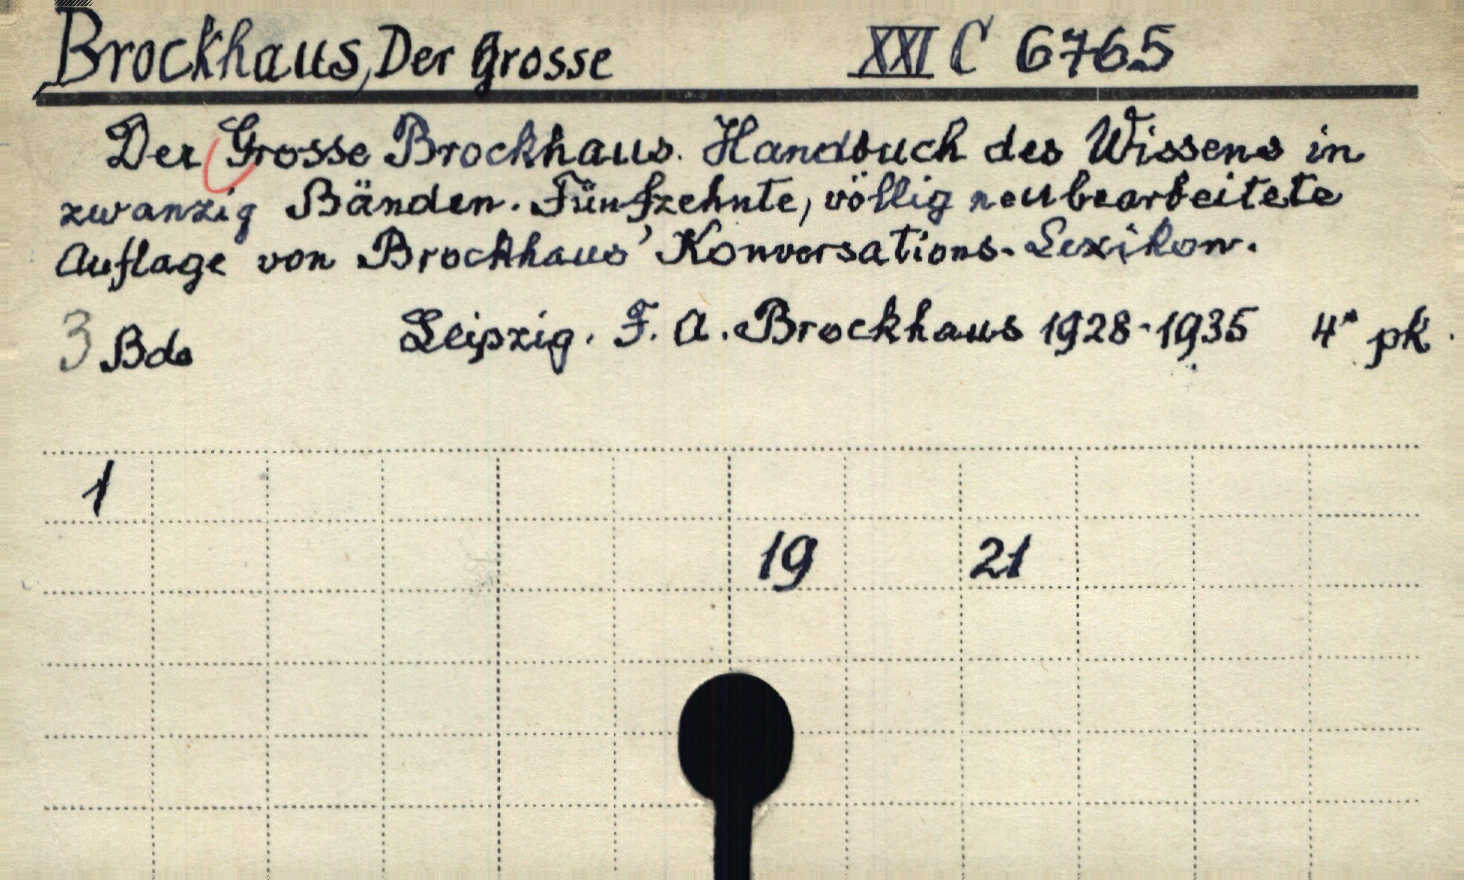 Brockhaus, Der Grosse XXI C 6765
Der Grosse Brockhaus. Handbuch des Wissens in
zwanzig Bänden. Fünfzehnte, völlig neubearbeitete
Auflage von Brockhaus' Konversations-Lexikon.
3 Bde Leipzig. F. A. Brockhaus 1928-1935 4° pk.
1
19 21